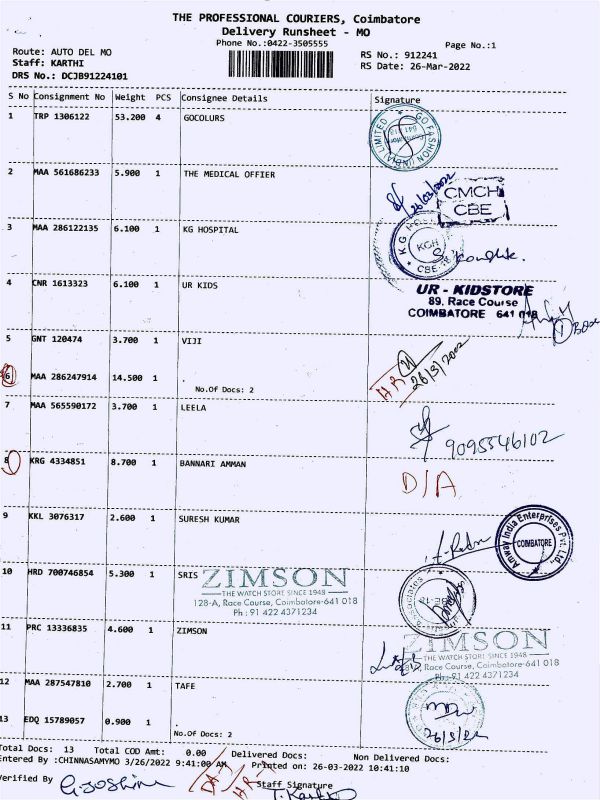 THE PROFESSIONAL COURIERS, Coimbatore
Delivery Runsheet - MO
Phone No.:0422-3505555
Page No.:1
Route: AUTO DEL MO
Staff: KARTHI
DRS No.: DCJB91224101
RS No.: 912241
RS Date: 26-Mar-2022
S No Consignment No Weight PCS Consignee Details Signature
1 TRP 1306122 53.200 4 GOCOLURS
GO FASHION (INDIA) LIMITED
2 MAA 561686233 5.900 1 THE MEDICAL OFFIER
26/03/2022
CMCH
CBE
3 MAA 286122135 6.100 1 KG HOSPITAL
KGH
4 CNR 1613323 6.100 1 UR KIDS
UR - KIDSTORE
89, Race Course
COIMBATORE 641 018
5 GNT 120474 3.700 1 VIJI
6 MAA 286247914 14.500 1
No.Of Docs: 2
HR
7 MAA 565590172 3.700 1 LEELA
9095546102
8 KRG 4334851 8.700 1 BANNARI AMMAN
D/A
9 KKL 3076317 2.600 1 SURESH KUMAR
Amway India Enterprises Pvt. Ltd.
COIMBATORE
10 HRD 700746854 5.300 1 SRIS
ZIMSON
THE WATCH STORE SINCE 1948
128-A, Race Course, Coimbatore-641 018
Ph : 91 422 4371234
11 PRC 13336835 4.600 1 ZIMSON
ZIMSON
THE WATCH STORE SINCE 1948
Race Course, Coimbatore-641 018
Ph : 91 422 4371234
12 MAA 287547810 2.700 1 TAFE
13 EDQ 15789057 0.900 1
No.Of Docs: 2
Total Docs: 13 Total COD Amt: 0.00 Delivered Docs: Non Delivered Docs:
Entered By :CHINNASAMYMO 3/26/2022 9:41:00 AM Printed on: 26-03-2022 10:41:10
Verified By
Staff Signature